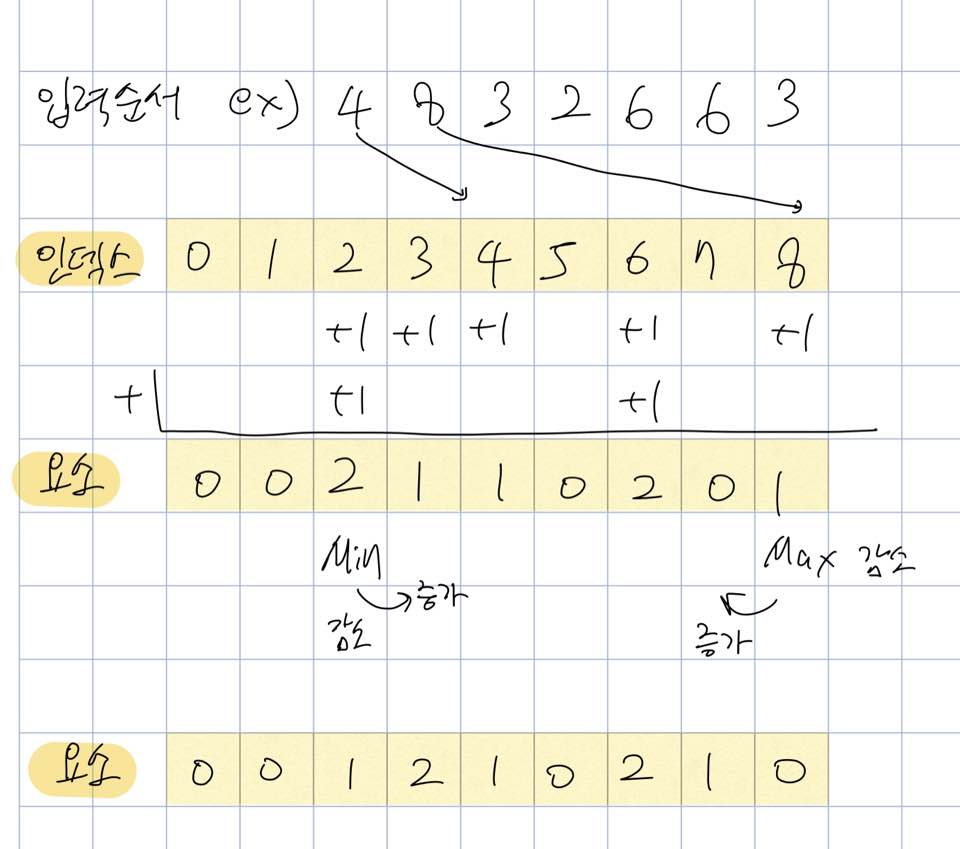 입력순서 ex) 4 8 3 2 6 6 3
인덱스 0 1 2 3 4 5 6 7 8
+1 +1 +1 +1 +1
+1 +1 +1
요소 0 0 2 1 1 0 2 0 1
Min Max 감소
증가
감소 증가
요소 0 0 1 2 1 0 2 1 0